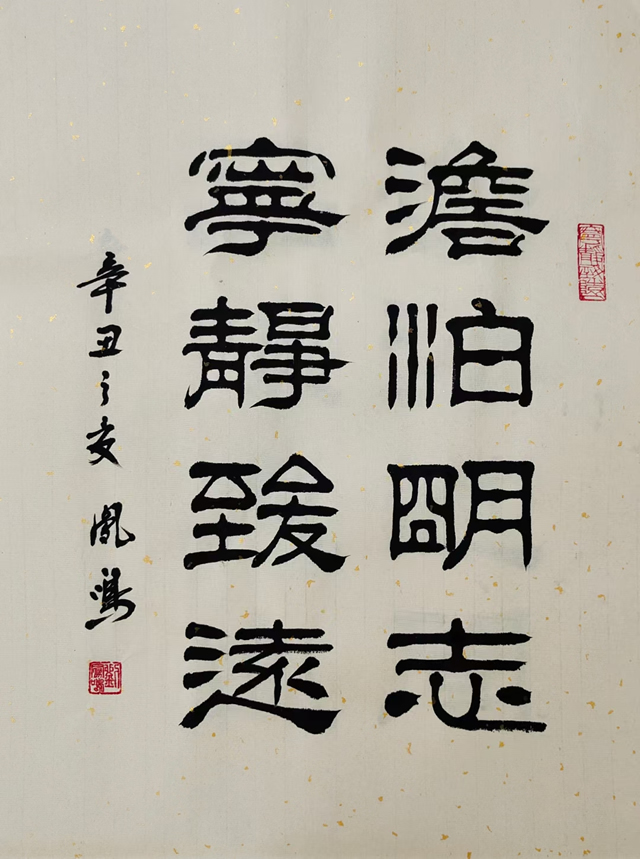 澹泊明志
寧靜致遠
辛丑之夏 鳳鳴